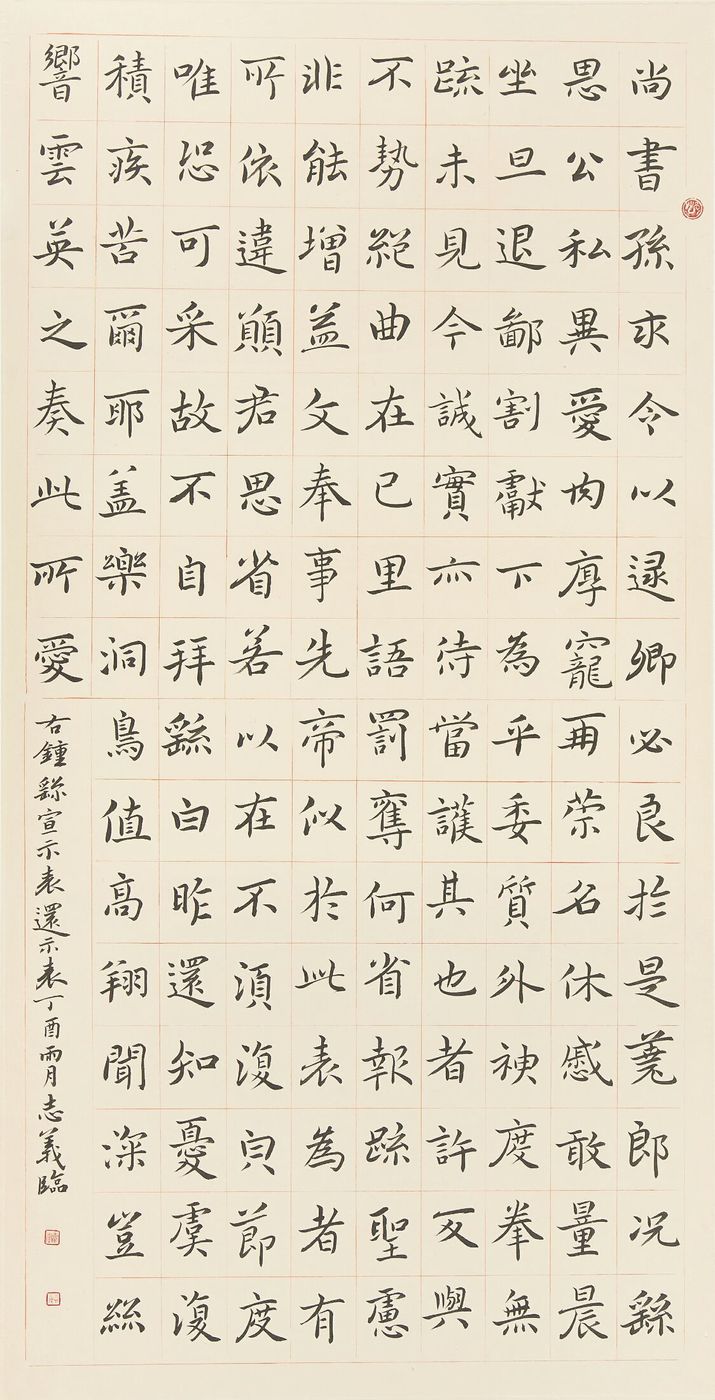 尚書孫求令以逯卿必良於是蕘郎况繇
思公私異愛肉厚寵再榮名休慼敢量晨
坐旦退鄙割獻下為乎委質外神度拳無
疏未見今誠實亦待當護其也者許又與
不勢絕曲在已里語罰奪何省報疏聖慮
非能增益文奉事先帝似於此表為者有
所依違顛君思省若以在不須復貟節度
唯恐可采故不自拜繇白昨還知憂虞復
積疾苦爾耶蓋樂洞鳥值高翔聞深豈絲
響雲英之奏此所愛
右鍾繇宣示表還示表丁酉雨月志義臨